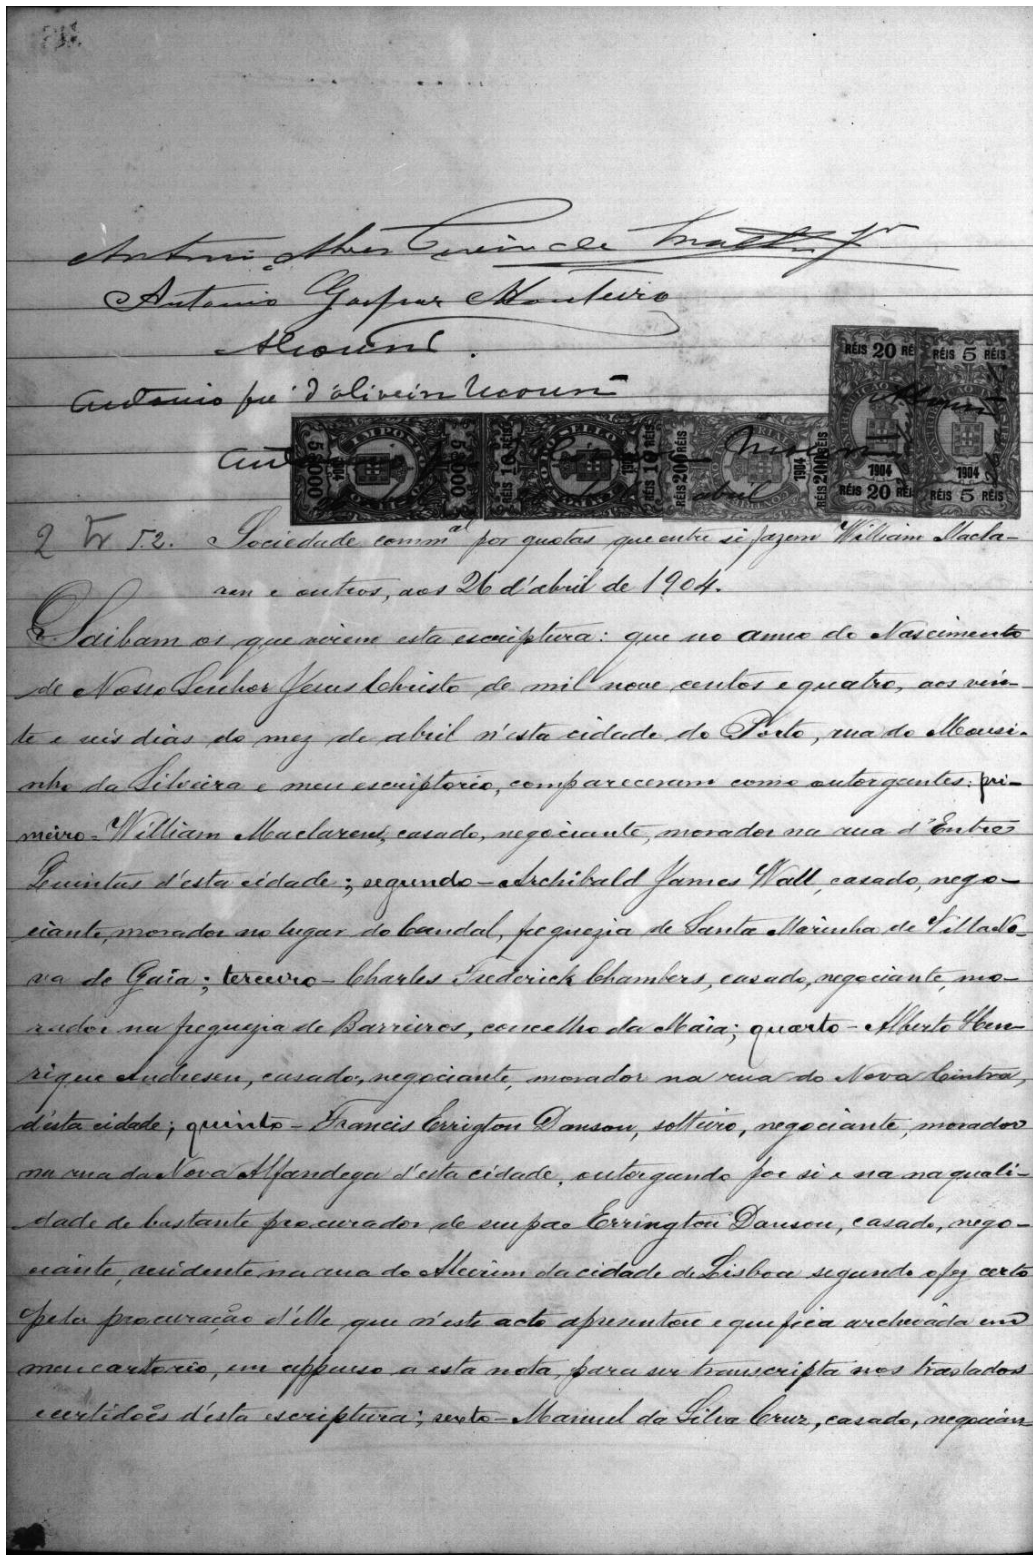 Antonio Alves
Antonio Gaspar Monteiro
Antonio José d'Oliveira Mourão
RÉIS 20 RÉIS
RÉIS 5 RÉIS
1904
1904
RÉIS 20 RÉIS
RÉIS 5 RÉIS
5$000 IMPOSTO 5$000
RÉIS 10 IMPOSTO 10 RÉIS
RÉIS 200 1904 200 RÉIS
abril
2 Tr 52. Sociedade comm.al por quotas que entre si fazem William Macla-
ren e outros, aos 26 d'abril de 1904.
Saibam os que virem esta escriptura: que no anno do Nascimento
de Nosso Senhor Jesus Christo de mil nove centos e quatro, aos vin-
te e seis dias do mez de abril n'esta cidade do Porto, rua do Mousi-
nho da Silveira e meu escriptorio, compareceram como outorgantes: pri-
meiro - William Maclaren, casado, negociante, morador na rua d'Entre
Quintas d'esta cidade; segundo - Archibald James Wall, casado, nego-
ciante, morador no lugar do Candal, freguezia de Santa Marinha de Villa No-
va de Gaia; terceiro - Charles Frederick Chambers, casado, negociante, mo-
rador na freguezia de Barreiros, concelho da Maia; quarto - Alberto Hen-
rique Andresen, casado, negociante, morador na rua do Nova Cintra,
d'esta cidade; quinto - Francis Errigton Dawson, solteiro, negociante, morador
na rua da Nova Alfandega d'esta cidade, outorgando por si e na na quali-
dade de bastante procurador de seu pae Errington Dawson, casado, nego-
ciante, residente na rua do Alecrim da cidade de Lisboa segundo o fez certo
pela procuração d'elle que n'este acto apresentou e que fica archivada em
meu cartorio, em appenso a esta nota, para ser transcripta nos traslados
e certidões d'esta escriptura; sexto - Manuel da Silva Cruz, casado, negocian